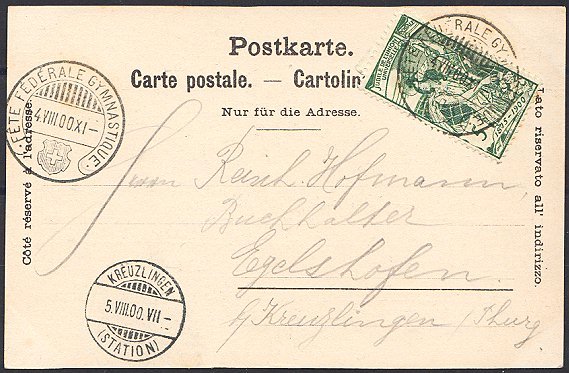 Postkarte.
Carte postale. — Cartolin
Nur für die Adresse.
Côté réservé à l'adresse.
Lato riservato all' indirizzo.
FÊTE FÉDÉRALE GYMNASTIQUE.
4.VIII.00.XI-
DÉRALE GYMN
Herrn Reinh. Hofmann,
Buchhalter
Egelshofen.
b/Kreuzlingen /Thurg
KREUZLINGEN
5.VIII.00. VII-
(STATION)